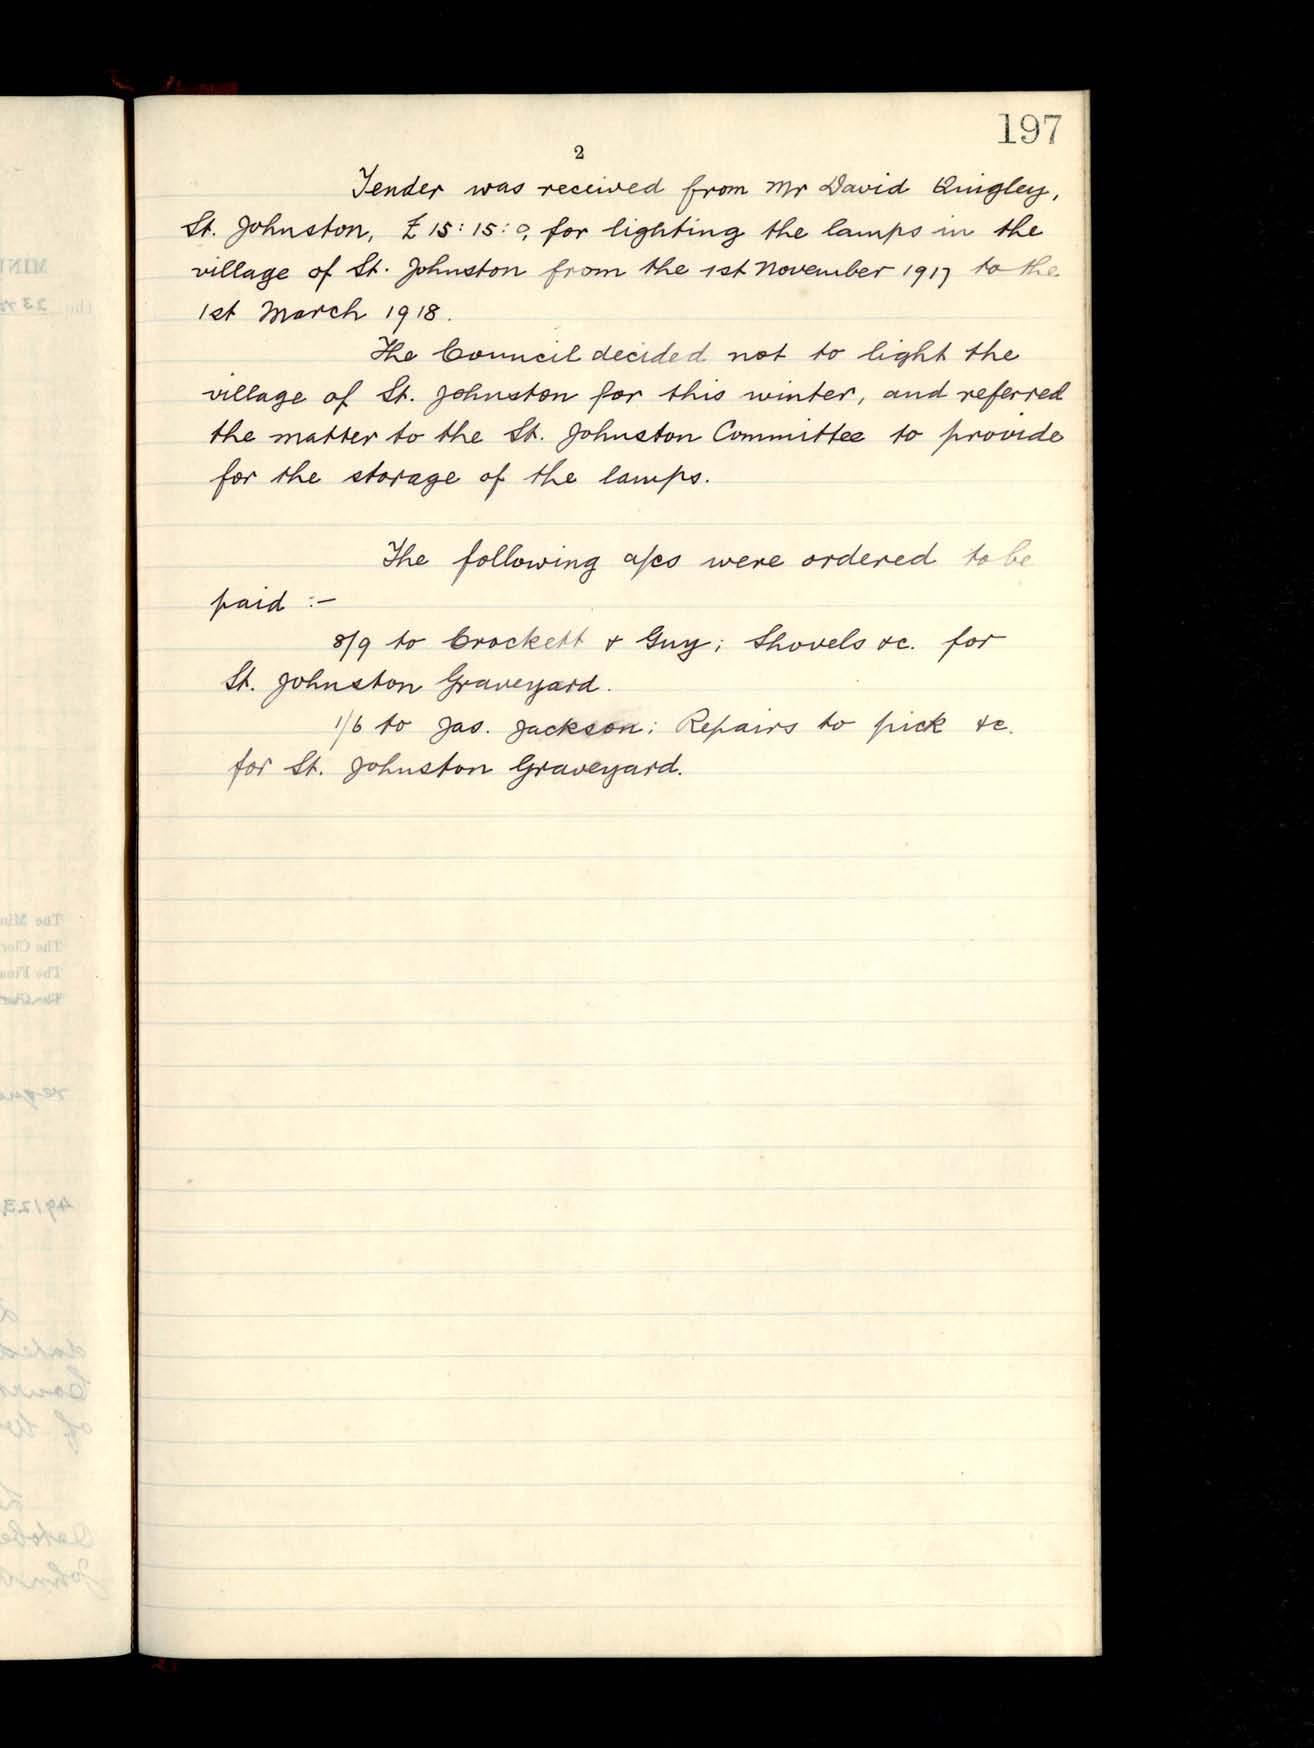 197
2
Tender was received from Mr David Quigley,
St. Johnston, £15:15:0, for lighting the lamps in the
village of St. Johnston from the 1st November 1917 to the
1st March 1918.
The Council decided not to light the
village of St. Johnston for this winter, and referred
the matter to the St. Johnston Committee to provide
for the storage of the lamps.
The following a/cs were ordered to be
paid :-
8/9 to Crockett & Guy; Shovels &c. for
St. Johnston Graveyard.
1/6 to Jas. Jackson; Repairs to pick &c.
for St. Johnston Graveyard.